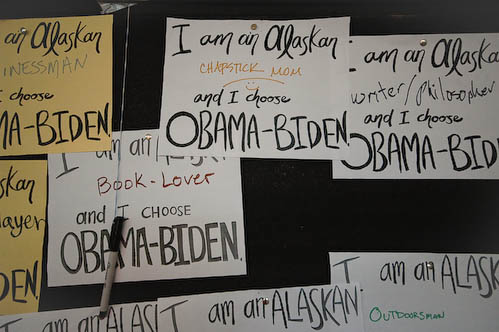 an Alaskan
INESSMAN
I choose
MA-BIDEN.
I am an Alaskan
CHAPSTICK MOM
and I choose
OBAMA-BIDEN.
an Alaskan
writer/philosopher
and I choose
OBAMA-BID
skan
ayer
DEN.
I am an
BOOK-LOVER
and I CHOOSE
OBAMA-BIDEN.
I am an ALASKAN
OUTDOORSMAN
I am an ALASKAN
I am an ALAS